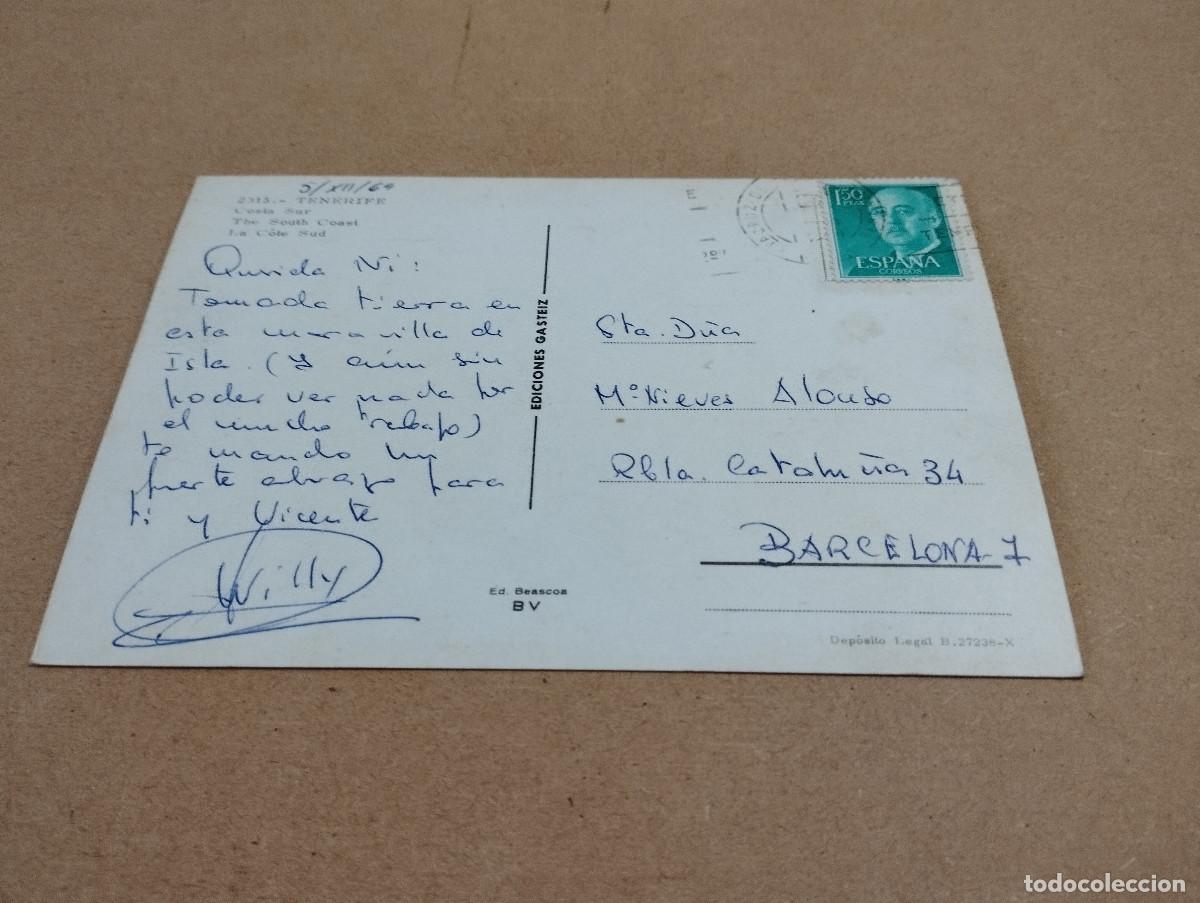 5/XII/69
2315.- TENERIFE
Costa Sur
The South Coast
La Côte Sud
Querida Ni:
Tomada tierra en
esta maravilla de
Isla. (Y aún sin
poder ver nada por
el mucho trabajo)
te mando un
fuerte abrazo para
ti y Vicente
Willy
EDICIONES GASTEIZ
Ed. Beascoa
BV
1,50
PTAS
ESPAÑA
CORREOS
Sta. Dña
Mª Nieves Alonso
Rbla. Cataluña 34
BARCELONA-7
Depósito Legal B.27238-X
todocoleccion